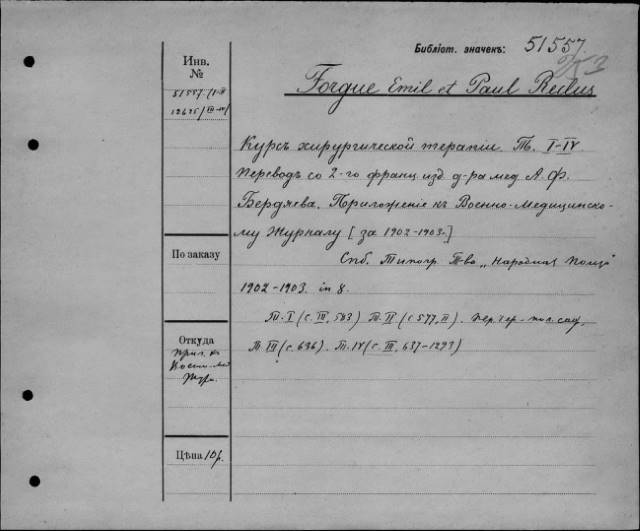 Библіот. значекъ: 51557.
Инв.
№
51557/I-II
12675/III-IV/
Forgue Emil et Paul Reclus
Курсъ хирургической терапіи. Т. I-IV
Переводъ со 2-го франц. изд. д-ра мед. А. Ф.
Бердяева. Приложеніе къ Военно-Медицинско-
му Журналу [за 1902-1903.]
По заказу
Спб. Типогр. Т-во „Народная Польза"
1902-1903. in 8.
Т. I (с. III, 583) Т. II (с 577, II).
Откуда
прил. къ
Военно-мед
Журн.
Т. III (с. 636). Т. IV (с. III, 637-1293)
Цѣна 10 р.